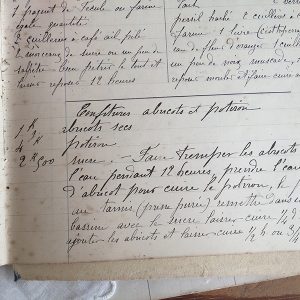 1 paquet de fécule ou farine
égale quantité
2 cuillères à café
2 morceaux de sucre ou un peu de
bien pétrir le tout et
laisser reposer 12 heures
persil haché 2 cuillères à
farine 1 livre
eau de fleur d'oranger 1 cuill
un peu de noix muscade,
reposer et faire cuire
Confitures abricots et potiron
1 K abricots secs
4 K potiron
2 K 500 sucre. - Faire tremper les abricots
l'eau pendant 12 heures, prendre l'eau
d'abricot pour cuire le potiron, le
au tamis (presse purée) remettre dans
bassine avec le sucre laisser cuire 1/2
ajouter les abricots et laisser cuire 1/2 h ou 3/